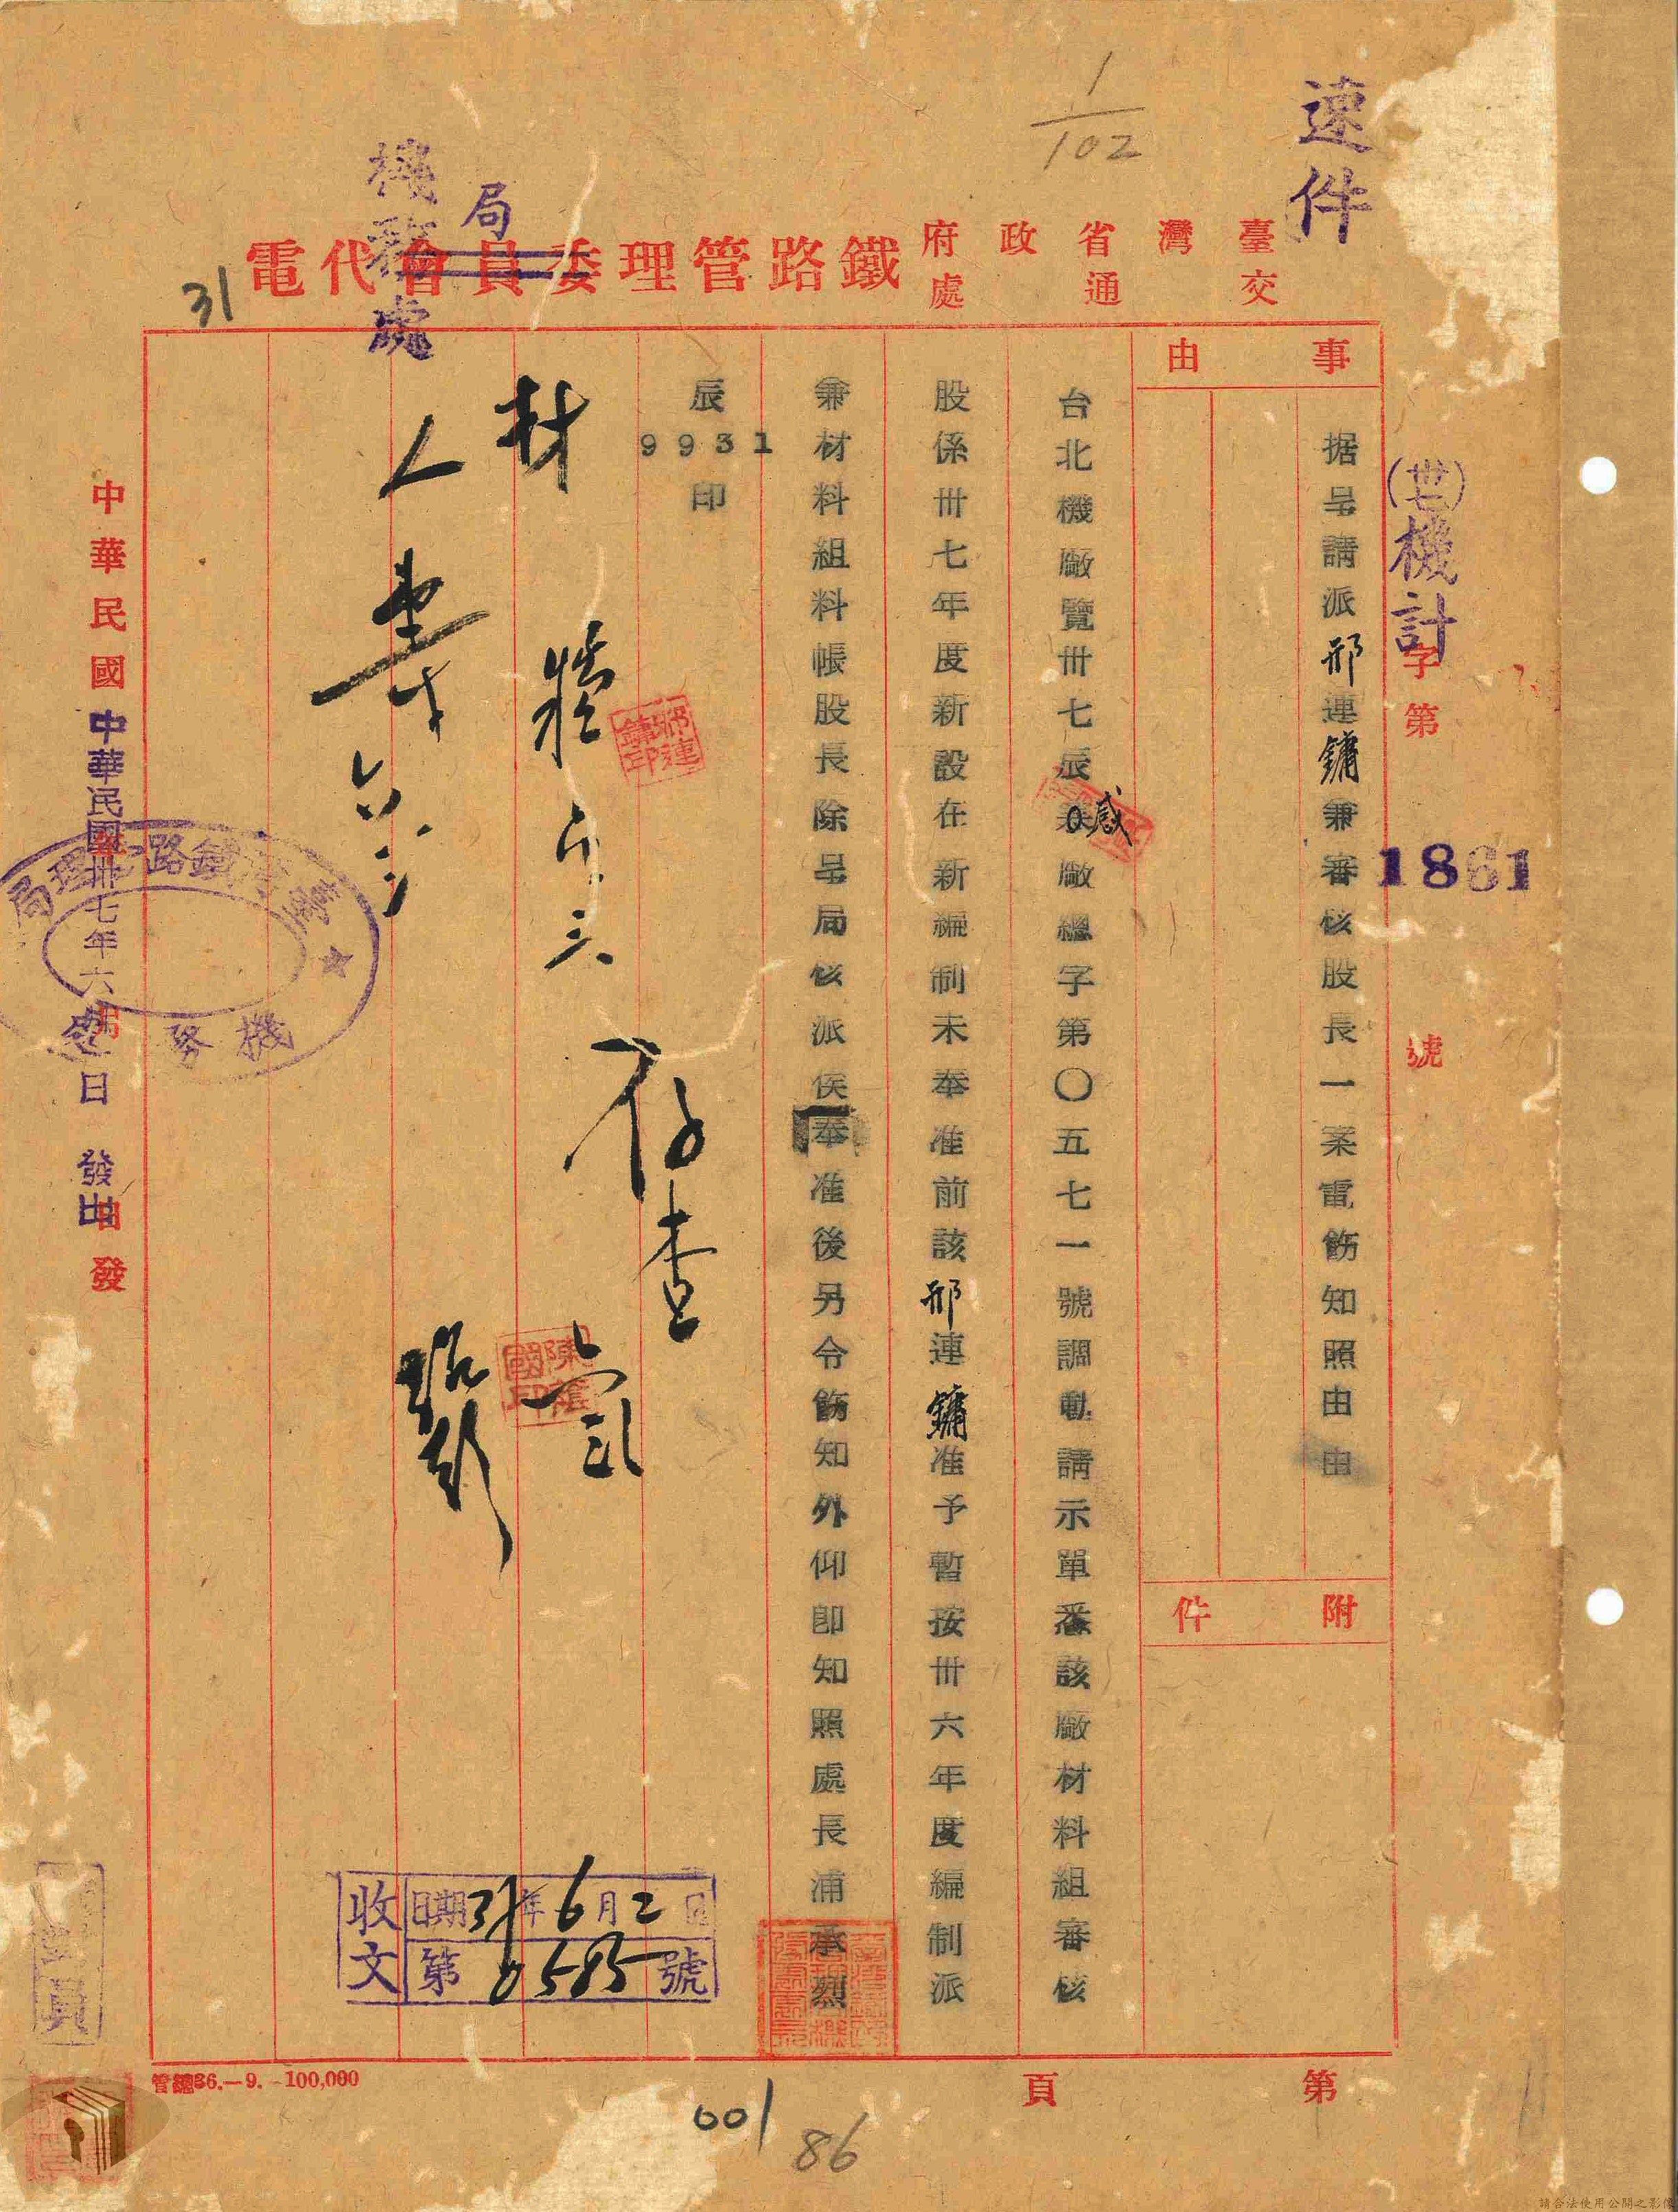 速件
1/102
臺灣省政府
交通處
鐵路管理委員會代電
局
機務處
31
(卅七)機計字第1861號
事由
据呈請派邢連鏞兼審核股長一案電飭知照由
附件
台北機廠覽卅七辰感廠總字第〇五七一號調動請示單悉該廠材料組審核
股係卅七年度新設在新編制未奉准前該邢連鏞准予暫按卅六年度編制派
兼材料組料帳股長除呈局核派俟奉准後另令飭知外仰即知照處長浦承烈
辰
9931
印
材
人事
六 三
存查
邢連鏞印
陳蔭國印
中華民國
中華民國卅七年六月 日
發出
發
臺灣鐵路管理局
機務處
收文
日期37年6月2日
第0585號
管總36.—9.—100,000
第 頁
001
86
請合法使用公開之影像